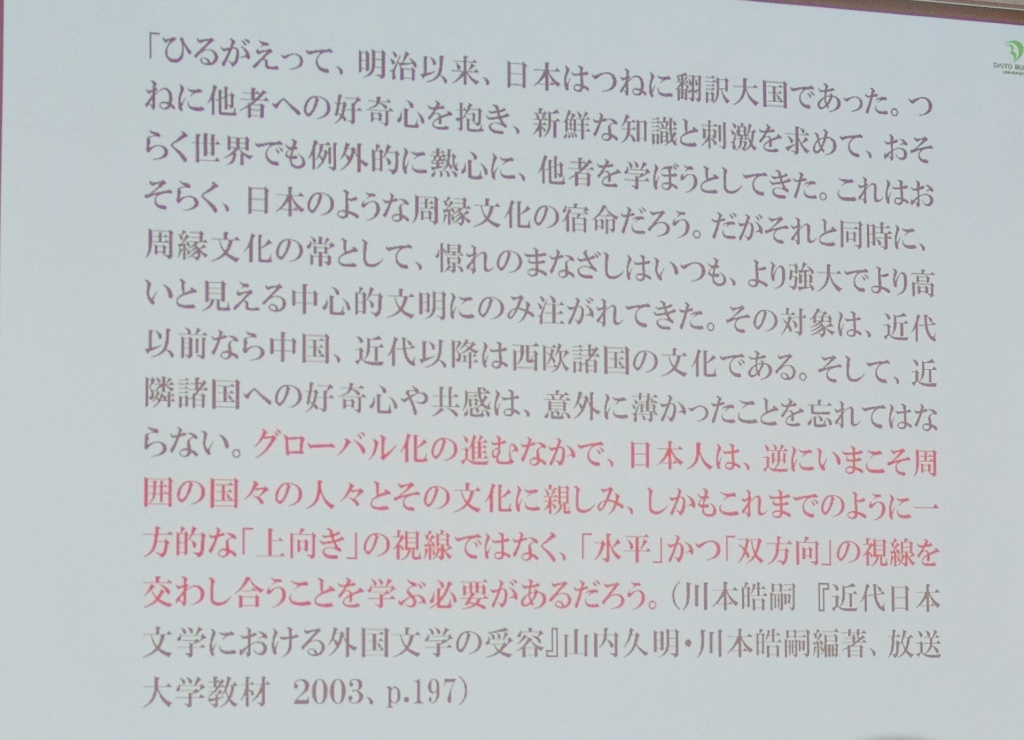 「ひるがえって、明治以来、日本はつねに翻訳大国であった。つ
ねに他者への好奇心を抱き、新鮮な知識と刺激を求めて、おそ
らく世界でも例外的に熱心に、他者を学ぼうとしてきた。これはお
そらく、日本のような周縁文化の宿命だろう。だがそれと同時に、
周縁文化の常として、憬れのまなざしはいつも、より強大でより高
いと見える中心的文明にのみ注がれてきた。その対象は、近代
以前なら中国、近代以降は西欧諸国の文化である。そして、近
隣諸国への好奇心や共感は、意外に薄かったことを忘れてはな
らない。グローバル化の進むなかで、日本人は、逆にいまこそ周
囲の国々の人々とその文化に親しみ、しかもこれまでのように一
方的な「上向き」の視線ではなく、「水平」かつ「双方向」の視線を
交わし合うことを学ぶ必要があるだろう。（川本皓嗣 『近代日本
文学における外国文学の受容』山内久明・川本皓嗣編著、放送
大学教材 2003、p.197）
DAITO